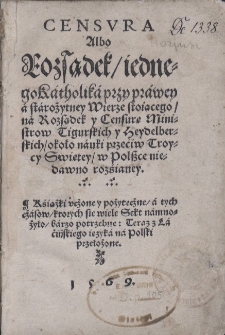 CENSVRA
Albo
Rozsądek/ iedne-
go Katholiká przy prawey
á stárożytney Wierze stoiącego/
ná Rozsądek y Censurę Mini-
strow Tigurskich y Heydelber-
skich/ około náuki przeciw Troy-
cy Swiętey/ w Polszce nie-
dawno rozsianey.
¶ Książki vczone y pożyteczne/ á tych
czásow/ ktorych sie wiele Sekt námno-
żyło/ bárzo potrzebne: Teraz z Lá-
cińskiego ięzyká ná Polski
przełożone.
1569.
1338